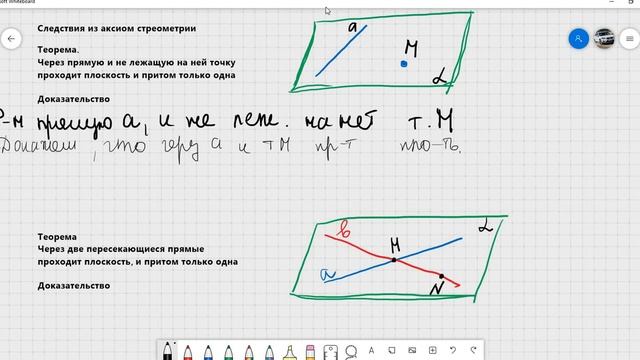 Следствия из аксиом стреометрии
Теорема.
Через прямую и не лежащую на ней точку
проходит плоскость и притом только одна
a
M
α
Доказательство
Р-м прямую а, и не леж. на ней т. М
Докажем, что через а и т М пр-т пло-ть.
Теорема
Через две пересекающиеся прямые
проходит плоскость, и притом только одна
Доказательство
b
M
α
a
N